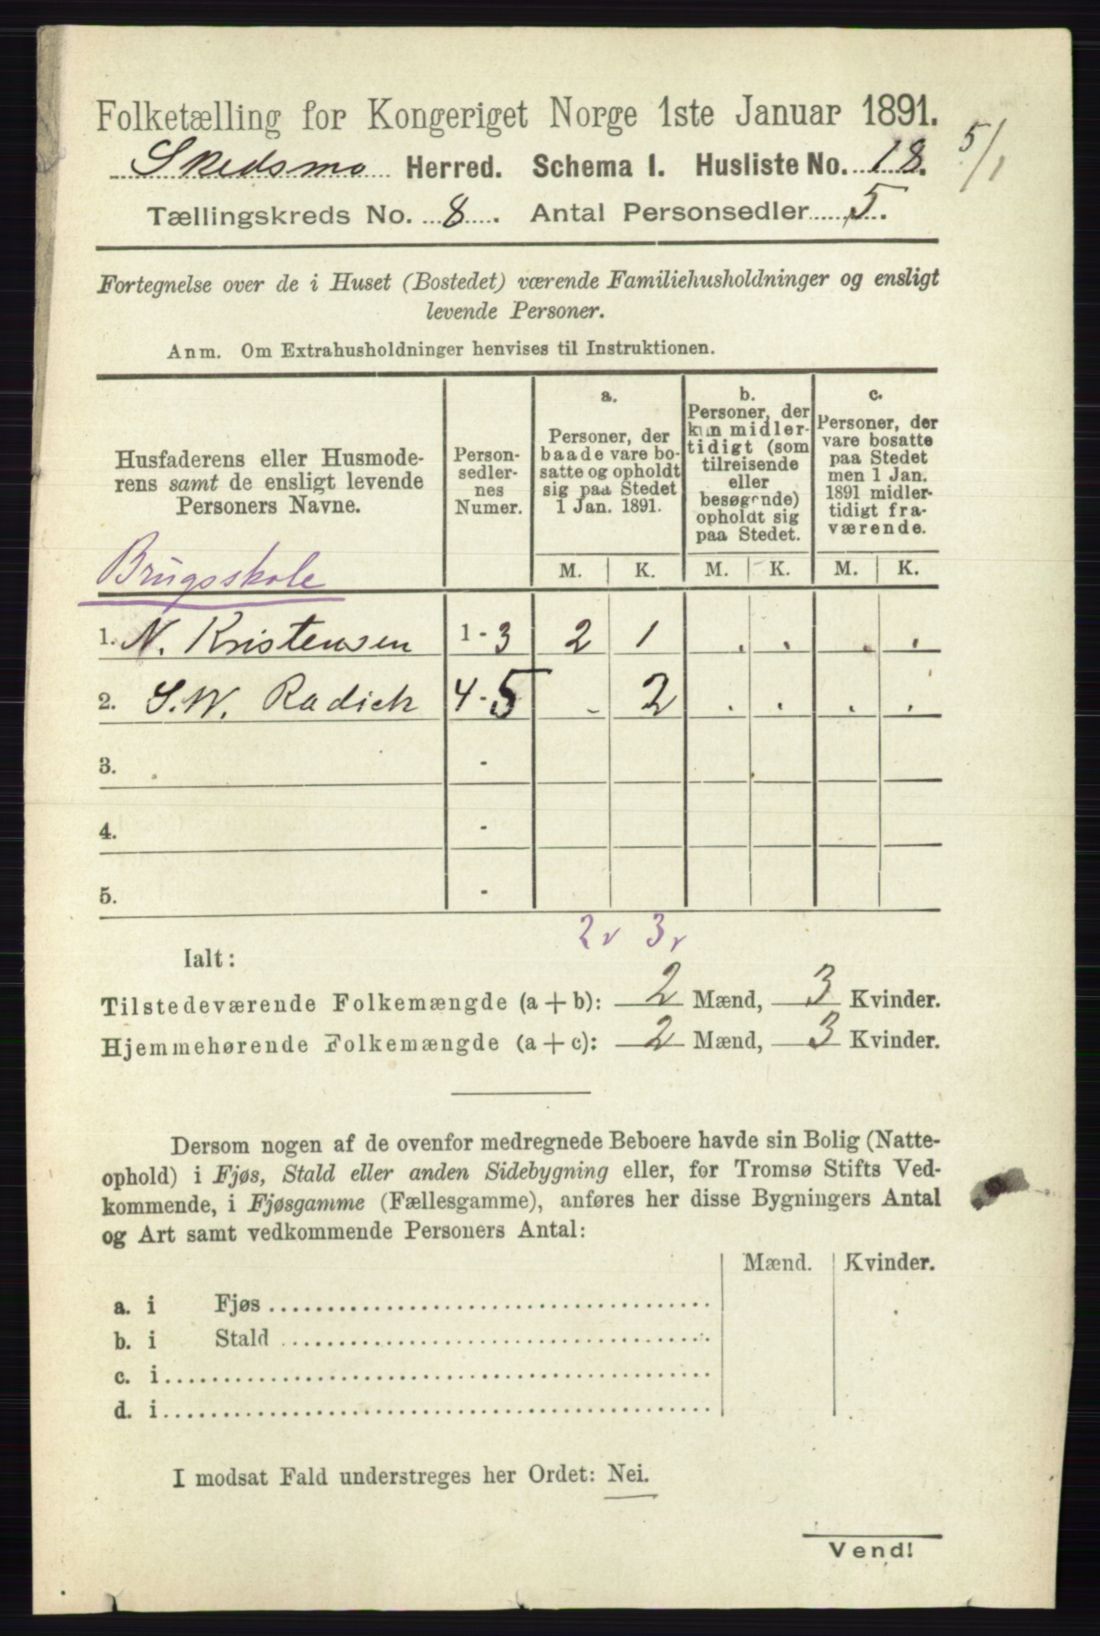 Folketælling for Kongeriget Norge 1ste Januar 1891.
Skedsmo Herred. Schema I. Husliste No. 18. 5/1
Tællingskreds No. 8. Antal Personsedler 5.
Fortegnelse over de i Huset (Bostedet) værende Familiehusholdninger og ensligt
levende Personer.
Anm. Om Extrahusholdninger henvises til Instruktionen.
Husfaderens eller Husmode-
rens samt de ensligt levende
Personers Navne.
Person-
sedler-
nes
Numer.
a.
Personer, der
baade vare bo-
satte og opholdt
sig paa Stedet
1 Jan. 1891.
b.
Personer, der
kun midler-
tidigt (som
tilreisende
eller
besøgende)
opholdt sig
paa Stedet.
c.
Personer, der
vare bosatte
paa Stedet
men 1 Jan.
1891 midler-
tidigt fra-
værende.
M. K. M. K. M. K.
Brugsskole
1. N. Kristensen 1-3 2 1 . . . .
2. S. W. Radich 4-5 - 2 . . . .
3. -
4. -
5. -
2 v 3 v
Ialt:
Tilstedeværende Folkemængde (a+b): 2 Mænd, 3 Kvinder.
Hjemmehørende Folkemængde (a+c): 2 Mænd, 3 Kvinder.
Dersom nogen af de ovenfor medregnede Beboere havde sin Bolig (Natte-
ophold) i Fjøs, Stald eller anden Sidebygning eller, for Tromsø Stifts Ved-
kommende, i Fjøsgamme (Fællesgamme), anføres her disse Bygningers Antal
og Art samt vedkommende Personers Antal:
Mænd. Kvinder.
a. i Fjøs
b. i Stald
c. i
d. i
I modsat Fald understreges her Ordet: Nei.
Vend!